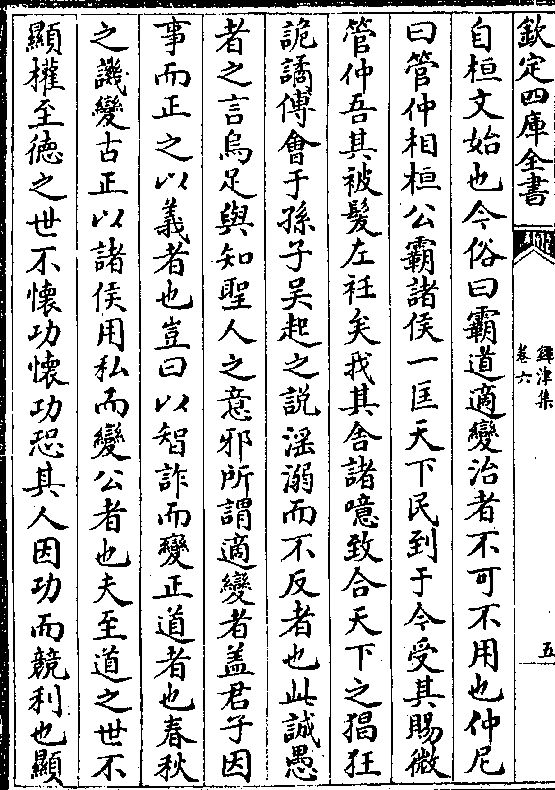 欽定四庫全書
鐔津集
卷六
五
自桓文始也今俗曰霸道適變治者不可不用也仲尼
曰管仲相桓公霸諸侯一匡天下民到于今受其賜微
管仲吾其被髮左衽矣我其舍諸噫致合天下之猖狂
詭譎傅會于孫子吴起之説淫溺而不反者也此誠愚
者之言烏足與知聖人之意邪所謂適變者盖君子因
事而正之以義者也豈曰以智詐而變正道者也春秋
之譏變古正以諸侯用私而變公者也夫至道之世不
顯權至徳之世不懐功懐功恐其人因功而競利也顯